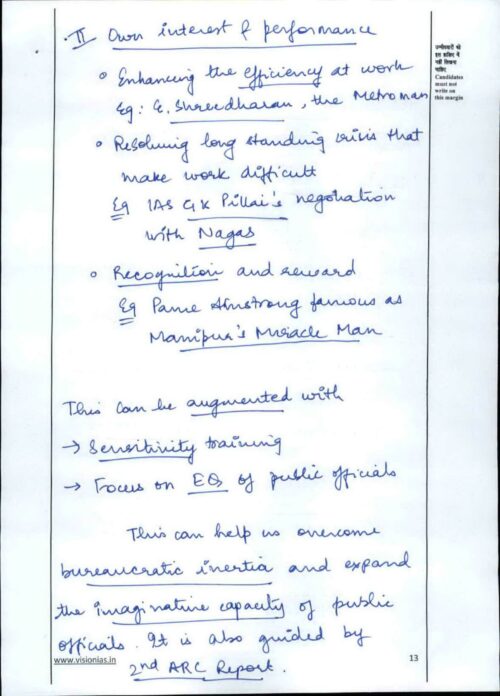 II Own interest & performance
उम्मीदवारों को
इस हाशिए में
नहीं लिखना
चाहिए
Candidates
must not
write on
this margin
• Enhancing the efficiency at work
Eg: E. Shreedharan, the Metroman
• Resolving long standing crisis that
make work difficult
Eg IAS GK Pillai's negotiation
with Nagas
• Recognition and reward
Eg Pame Armstrong famous as
Manipur's Miracle Man
This can be augmented with
→ Sensitivity training
→ Focus on EQ of public officials
This can help us overcome
bureaucratic inertia and expand
the imaginative capacity of public
officials. It is also guided by
2nd ARC Report.
www.visionias.in
13